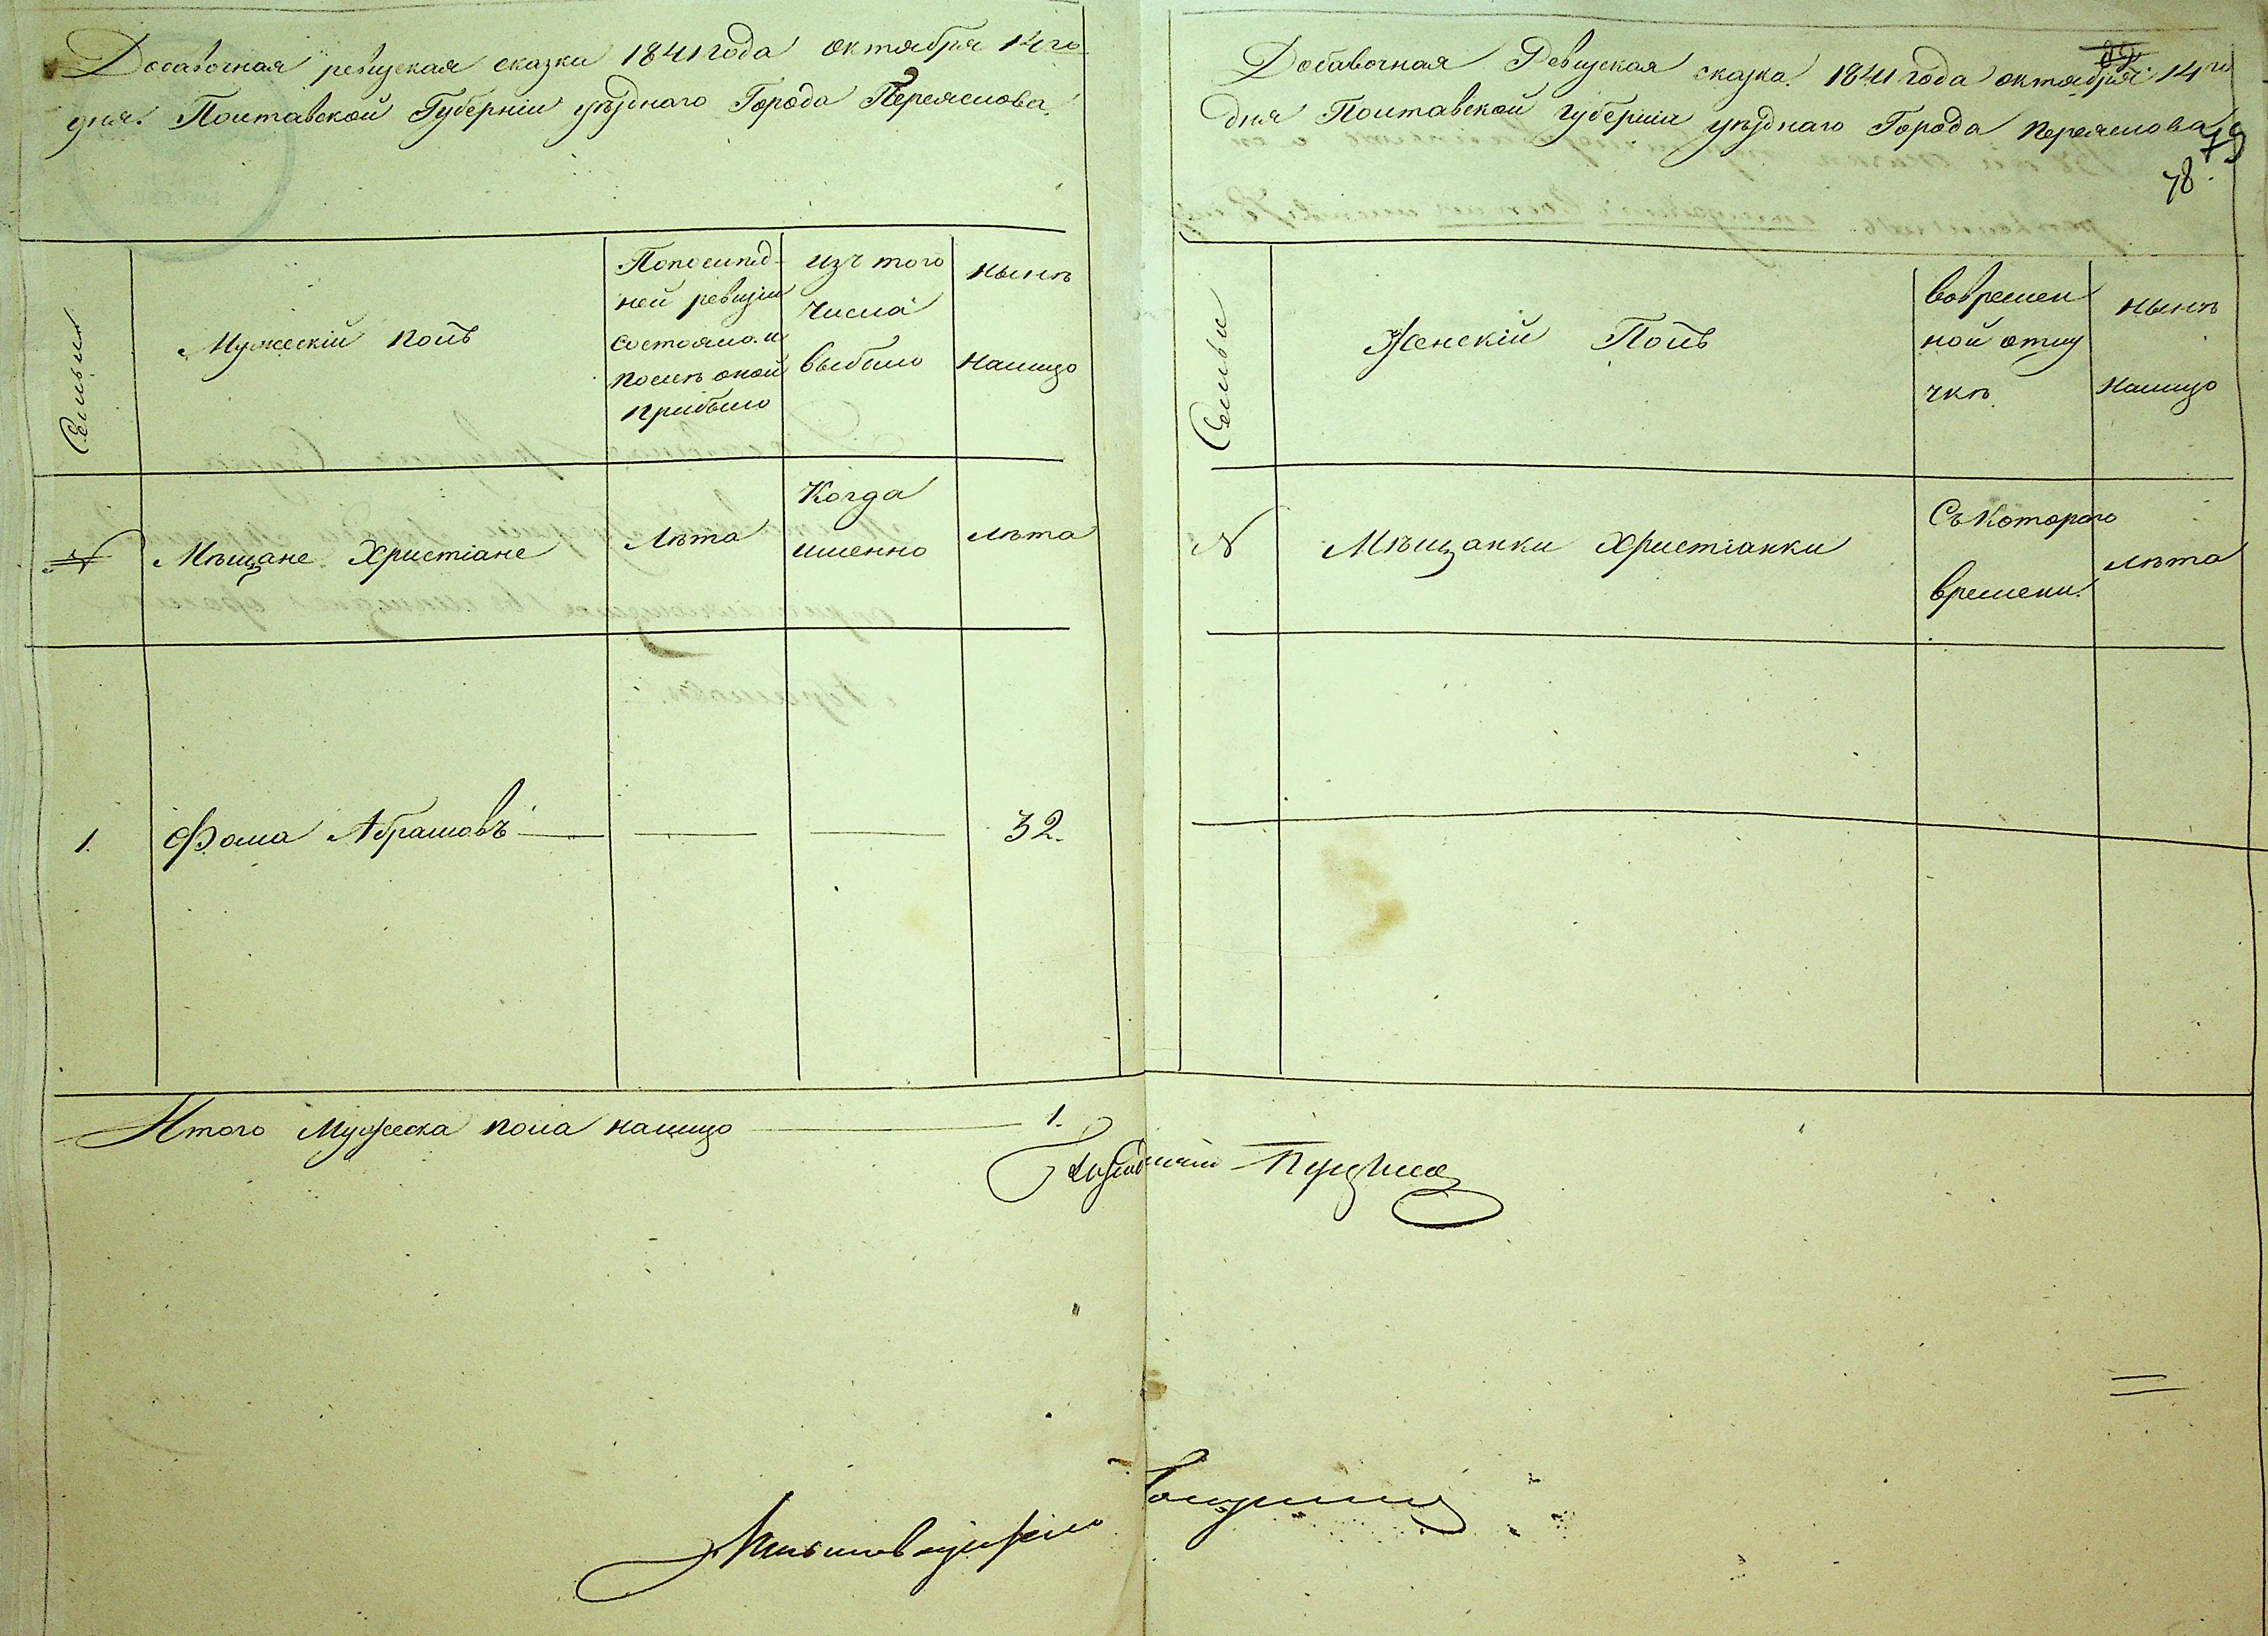 Добавочная ревизская сказки 1841 года октября 14го
дня. Полтавской Губерніи уѣзднаго Города Переяслова
Семьи
Мужескій полъ
Попослѣд-
ней ревизіи
состояло. и
послѣ оной
прибыло
Изъ того
числа
выбыло
Нынѣ
налицо
№
Мѣщане Христіане
Лѣта
Когда
именно
Лѣта
1.
Фома Абрамовъ
32.
Итого Мужеска пола налицо 1.
Добавочная Ревизская сказка 1841 года октября 14го
дня Полтавской Губерніи уѣзднаго Города Переяслова
79
78.
Семьи
Женскій Полъ
Вовремен
ной отлу
чкѣ
Нынѣ
налицо
№
Мѣщанки Христіанки
Съ котораго
времени.
Лѣта